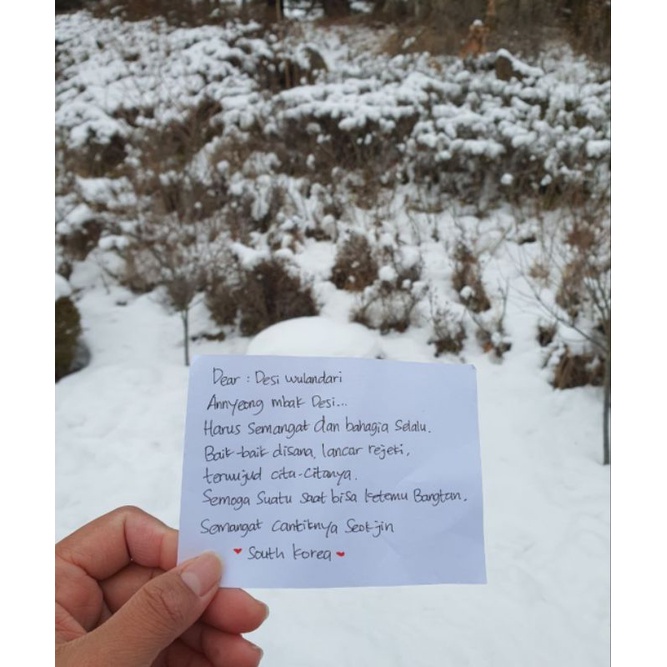 Dear : Desi wulandari
Annyeong mbak Desi...
Harus Semangat dan bahagia Selalu.
Baik-baik disana, lancar rejeki,
terwujud cita-citanya.
Semoga Suatu saat bisa ketemu Bangtan.
Semangat Cantiknya Seokjin
♥ South Korea ♥